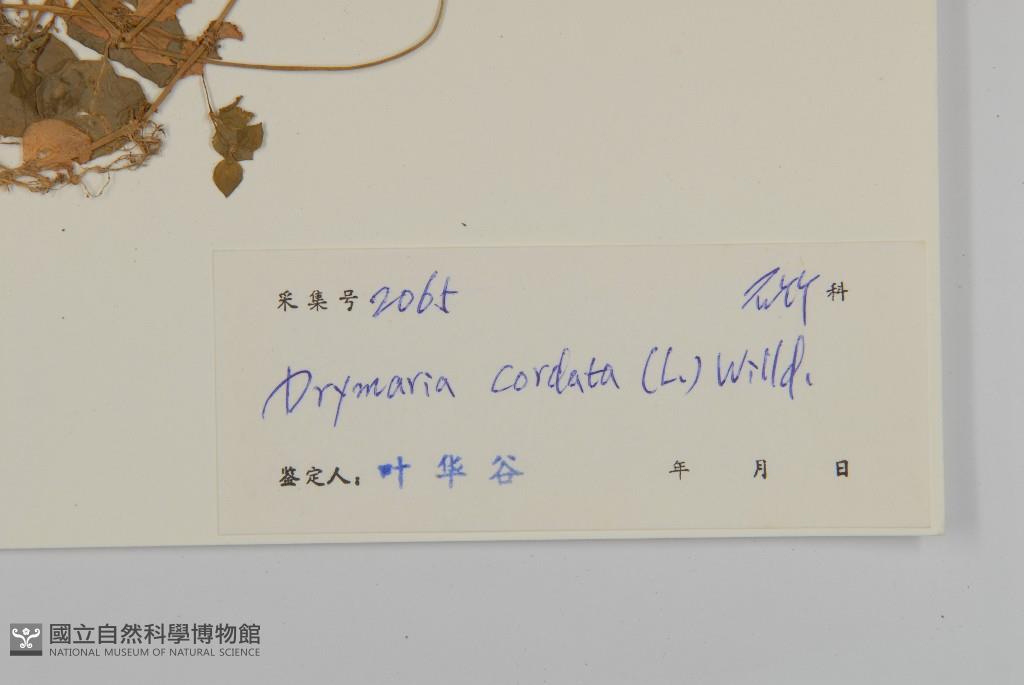 采集号 2065 石竹 科
Drymaria cordata (L.) Willd.
鉴定人: 叶华谷 年 月 日
國立自然科學博物館
NATIONAL MUSEUM OF NATURAL SCIENCE